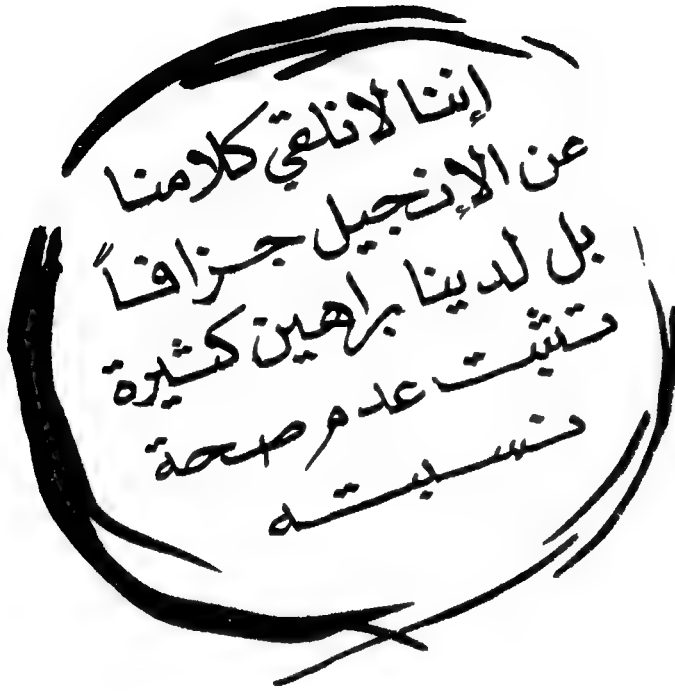 إننا لا نلقي كلامنا
عن الإنجيل جزافاً
بل لدينا براهين كثيرة
تثبت عدم صحة
نسبته